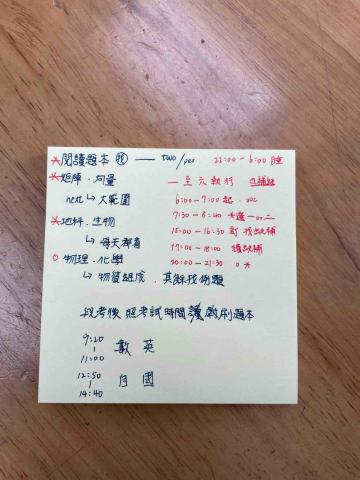 *閱讀題本 — two/per 22:00 - 6:00 睡
*矩陣.向量 一至六執行
next ↳ 大範圍 6:00 - 7:00 起, voc
*地科.生物 7:30 - 8:40 *選一or二
↳ 每天都看 15:00 - 16:30 訂 找缺補
○物理.化學 17:00 - 18:00 續缺補
20:00 - 21:30 ○ *
↳ 物質進度,其餘找例題
段考後 照考試時間讀 刷題本
9:20
| 數 英
11:00
12:50
| 自 國
14:40